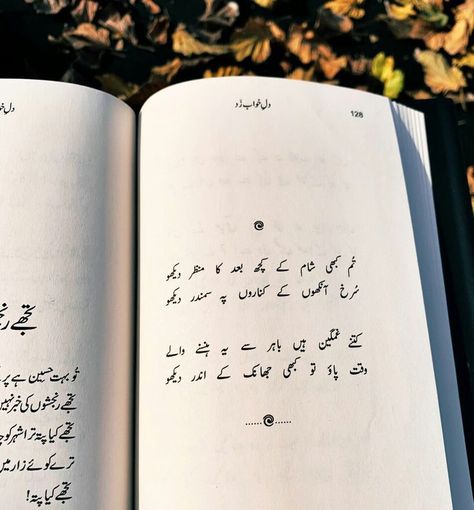 دلِ خواب زَد
128
تُم کبھی شام کے کچھ بعد کا منظر دیکھو
سُرخ آنکھوں کے کناروں پہ سمندر دیکھو
کتنے غمگین ہیں باہر سے یہ ہنسنے والے
وقت پاؤ تو کبھی جھانک کے اندر دیکھو
دلِ خوا
تجھے رنج
تُو بہت حسین ہے پر
تجھے رنجشوں کی خبر نہیں
تجھے کیا پتہ ترا شہر
ترے کوئے زار میں
تجھے کیا پتہ!